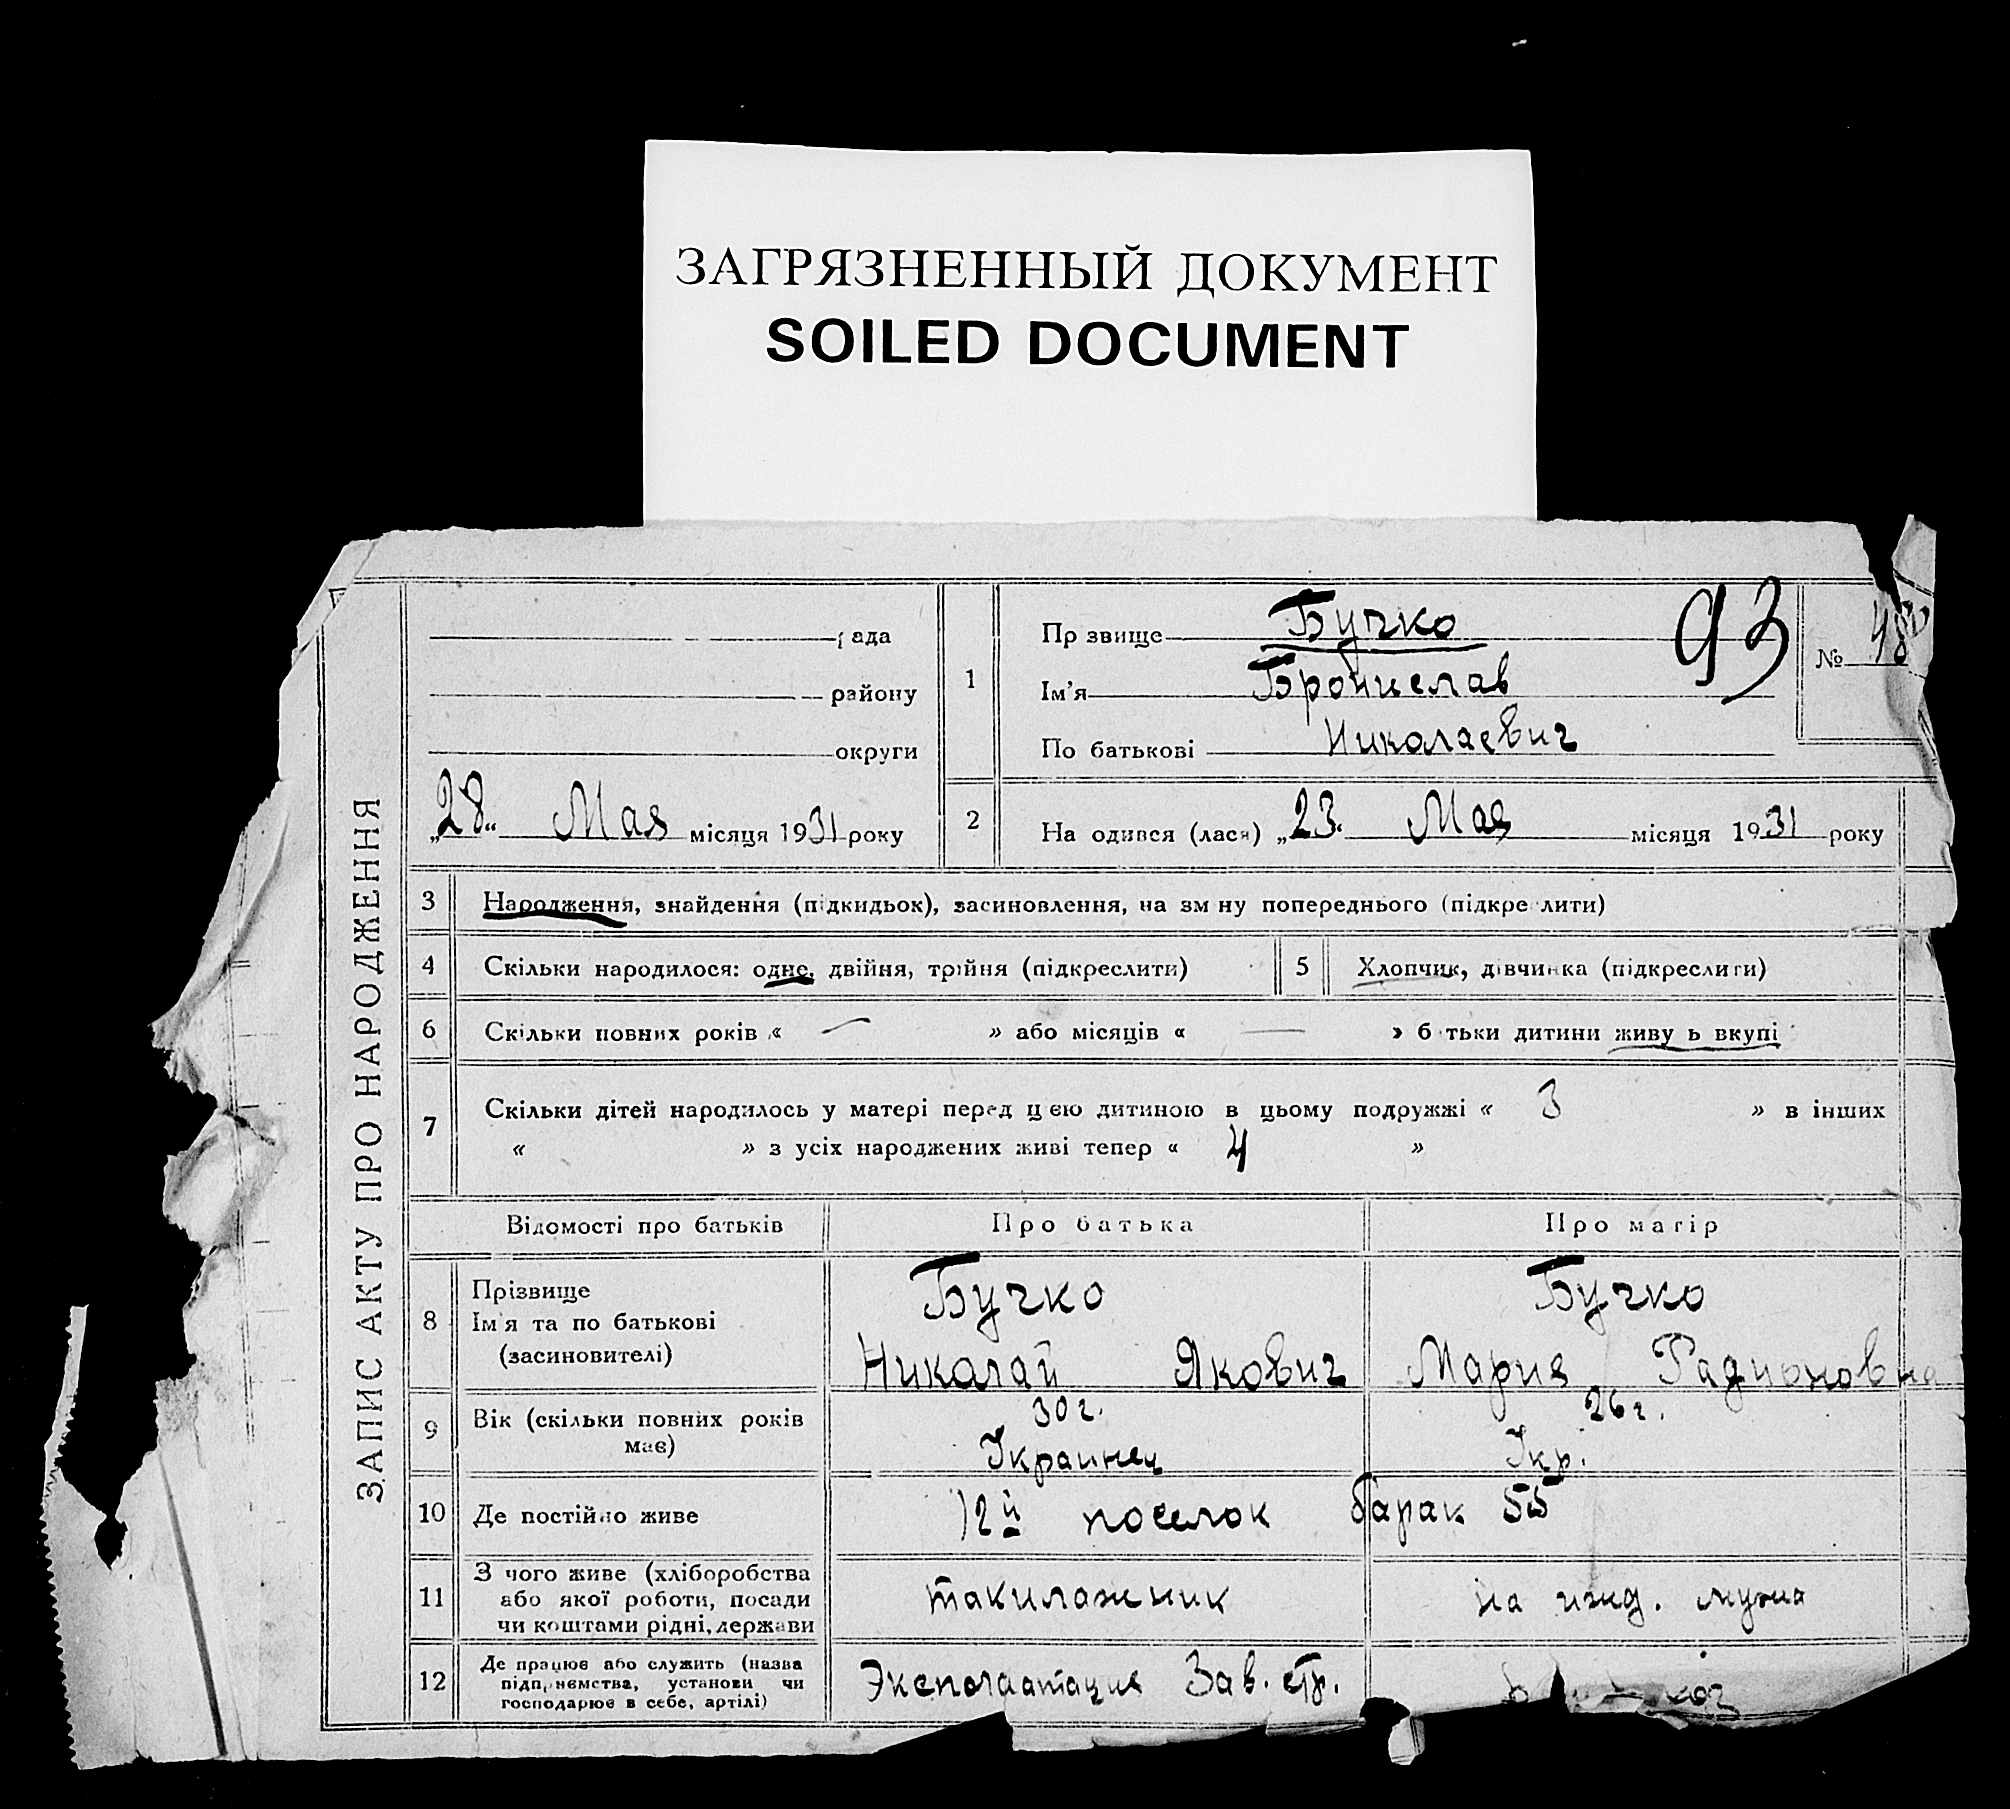 ЗАГРЯЗНЕННЫЙ ДОКУМЕНТ
SOILED DOCUMENT
ЗАПИС АКТУ ПРО НАРОДЖЕННЯ
ада
району
округи
„28“ Мая місяця 1931 року
1
Пр звище Бучко
Ім'я Бронислав
По батькові Николаевич
93
№ 48
2 На одився (лася) „23“ Мая місяця 1931 року
3 Народження, знайдення (підкидьок), засиновлення, на зм ну попереднього (підкре лити)
4 Скільки народилося: одне, двійня, трійня (підкреслити)
5 Хлопчик, дівчинка (підкреслити)
6 Скільки повних років « — » або місяців « — » б тьки дитини живу ь вкупі
7 Скільки дітей народилось у матері перед цією дитиною в цьому подружжі « 3 » в інших
« » з усіх народжених живі тепер « 4 »
Відомості про батьків Про батька Про матір
8 Прізвище
Ім'я та по батькові
(засиновителі)
Бучко
Николай Якович
Бучко
Мария Радионовна
9 Вік (скільки повних років
має)
30 г.
Украинец
26 г.
Укр.
10 Де постійно живе 12й поселок барак 55
11 З чого живе (хліборобства
або якої роботи, посади
чи коштами рідні, держави
такилажник
на ижд. мужа
12 Де працює або служить (назва
підпр ємства, установи чи
господарює в себе, артілі)
Эксплоатация Зав. стр.